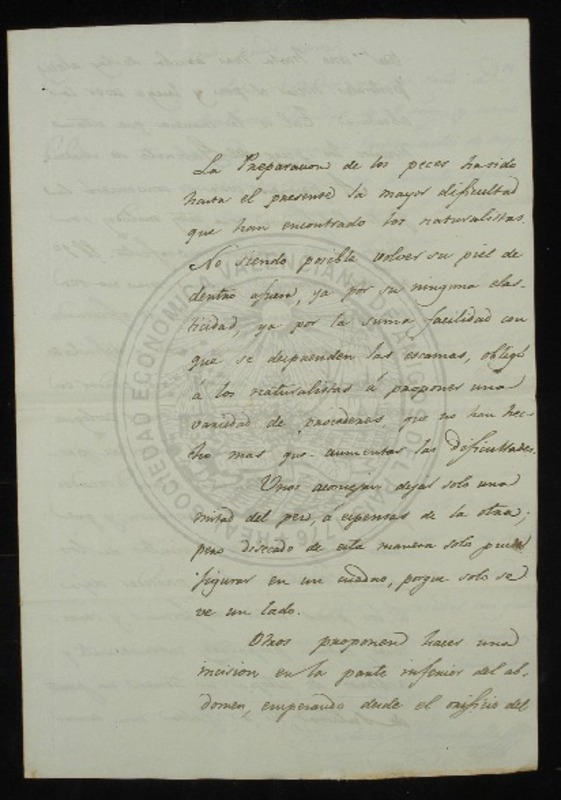 La Preparacion de los peces ha sido
hasta el presente la mayor dificultad
que han encontrado los naturalistas.
No siendo posible volver su piel de
dentro afuera, ya por su ninguna elas-
ticidad, ya por la suma facilidad con
que se desprenden las escamas, obligó
á los naturalistas á proponer una
variedad de procederes, que no han hec-
ho mas que aumentar las dificultades.
Unos aconsejan dejar solo una
mitad del pez, á espensas de la otra;
pero disecado de esta manera solo puede
figurar en un cuadro, porque solo se
ve un lado.
Otros proponen hacer una
incision en la parte inferior del ab-
domen, empezando desde el orificio del
REAL SOCIEDAD ECONOMICA VALENCIANA DE AMIGOS DEL PAIS 1776